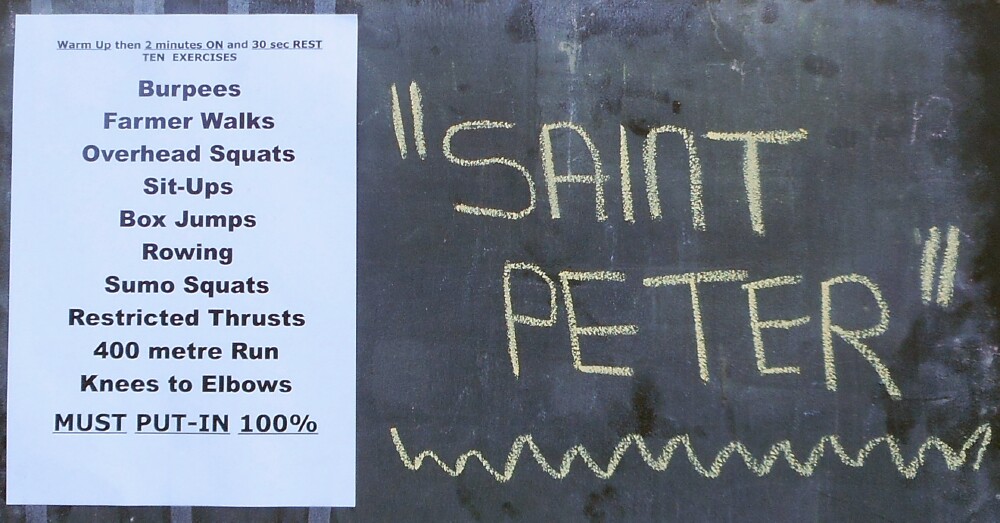 Warm Up then 2 minutes ON and 30 sec REST
TEN EXERCISES
Burpees
Farmer Walks
Overhead Squats
Sit-Ups
Box Jumps
Rowing
Sumo Squats
Restricted Thrusts
400 metre Run
Knees to Elbows
MUST PUT-IN 100%
"SAINT
PETER"